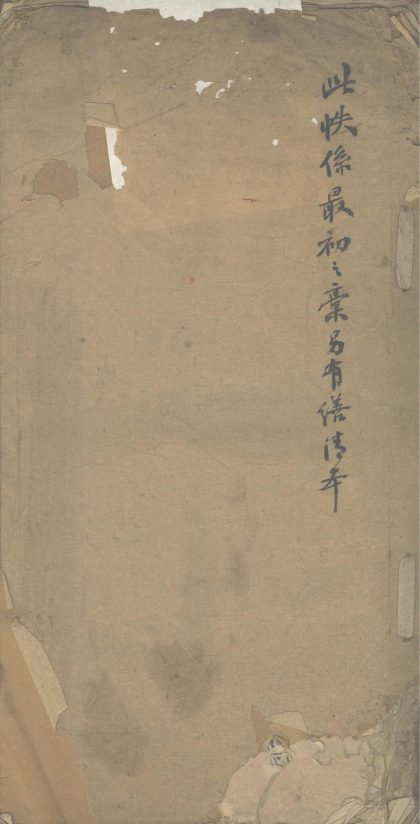 此帙係最初之稾另有繕清本